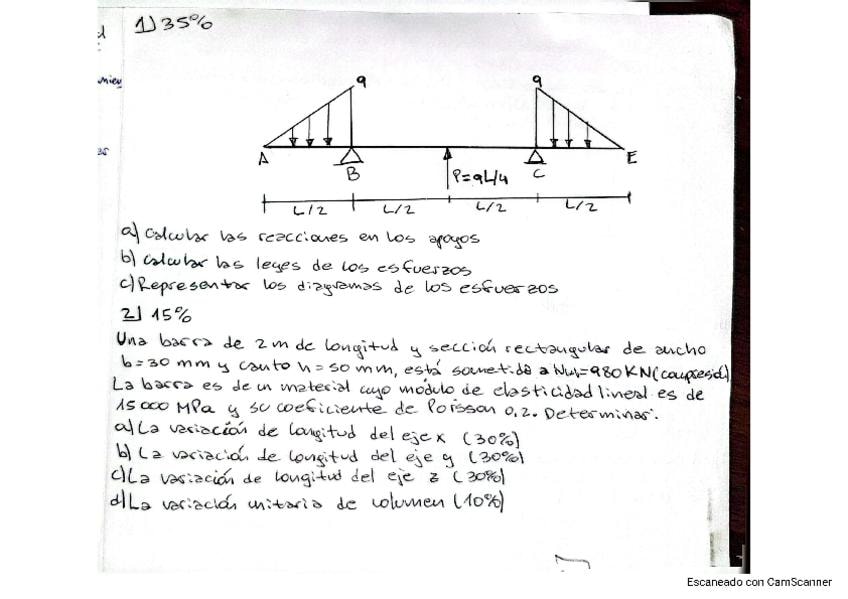 1) 35%
q
q
A
B
P=qL/4
C
E
L/2
L/2
L/2
L/2
a) Calcular las reacciones en los apoyos
b) Calcular las leyes de los esfuerzos
c) Representar los diagramas de los esfuerzos
2) 15%
Una barra de 2 m de longitud y sección rectangular de ancho
b=30 mm y canto h=50 mm, está sometida a =980 KN (compresión)
La barra es de un material cuyo módulo de elasticidad lineal es de
15000 MPa y su coeficiente de Poisson 0,2. Determinar:
a) La variación de longitud del eje x (30%)
b) La variación de longitud del eje y (30%)
c) La variación de longitud del eje z (30%)
d) La variación unitaria de volumen (10%)
Escaneado con CamScanner